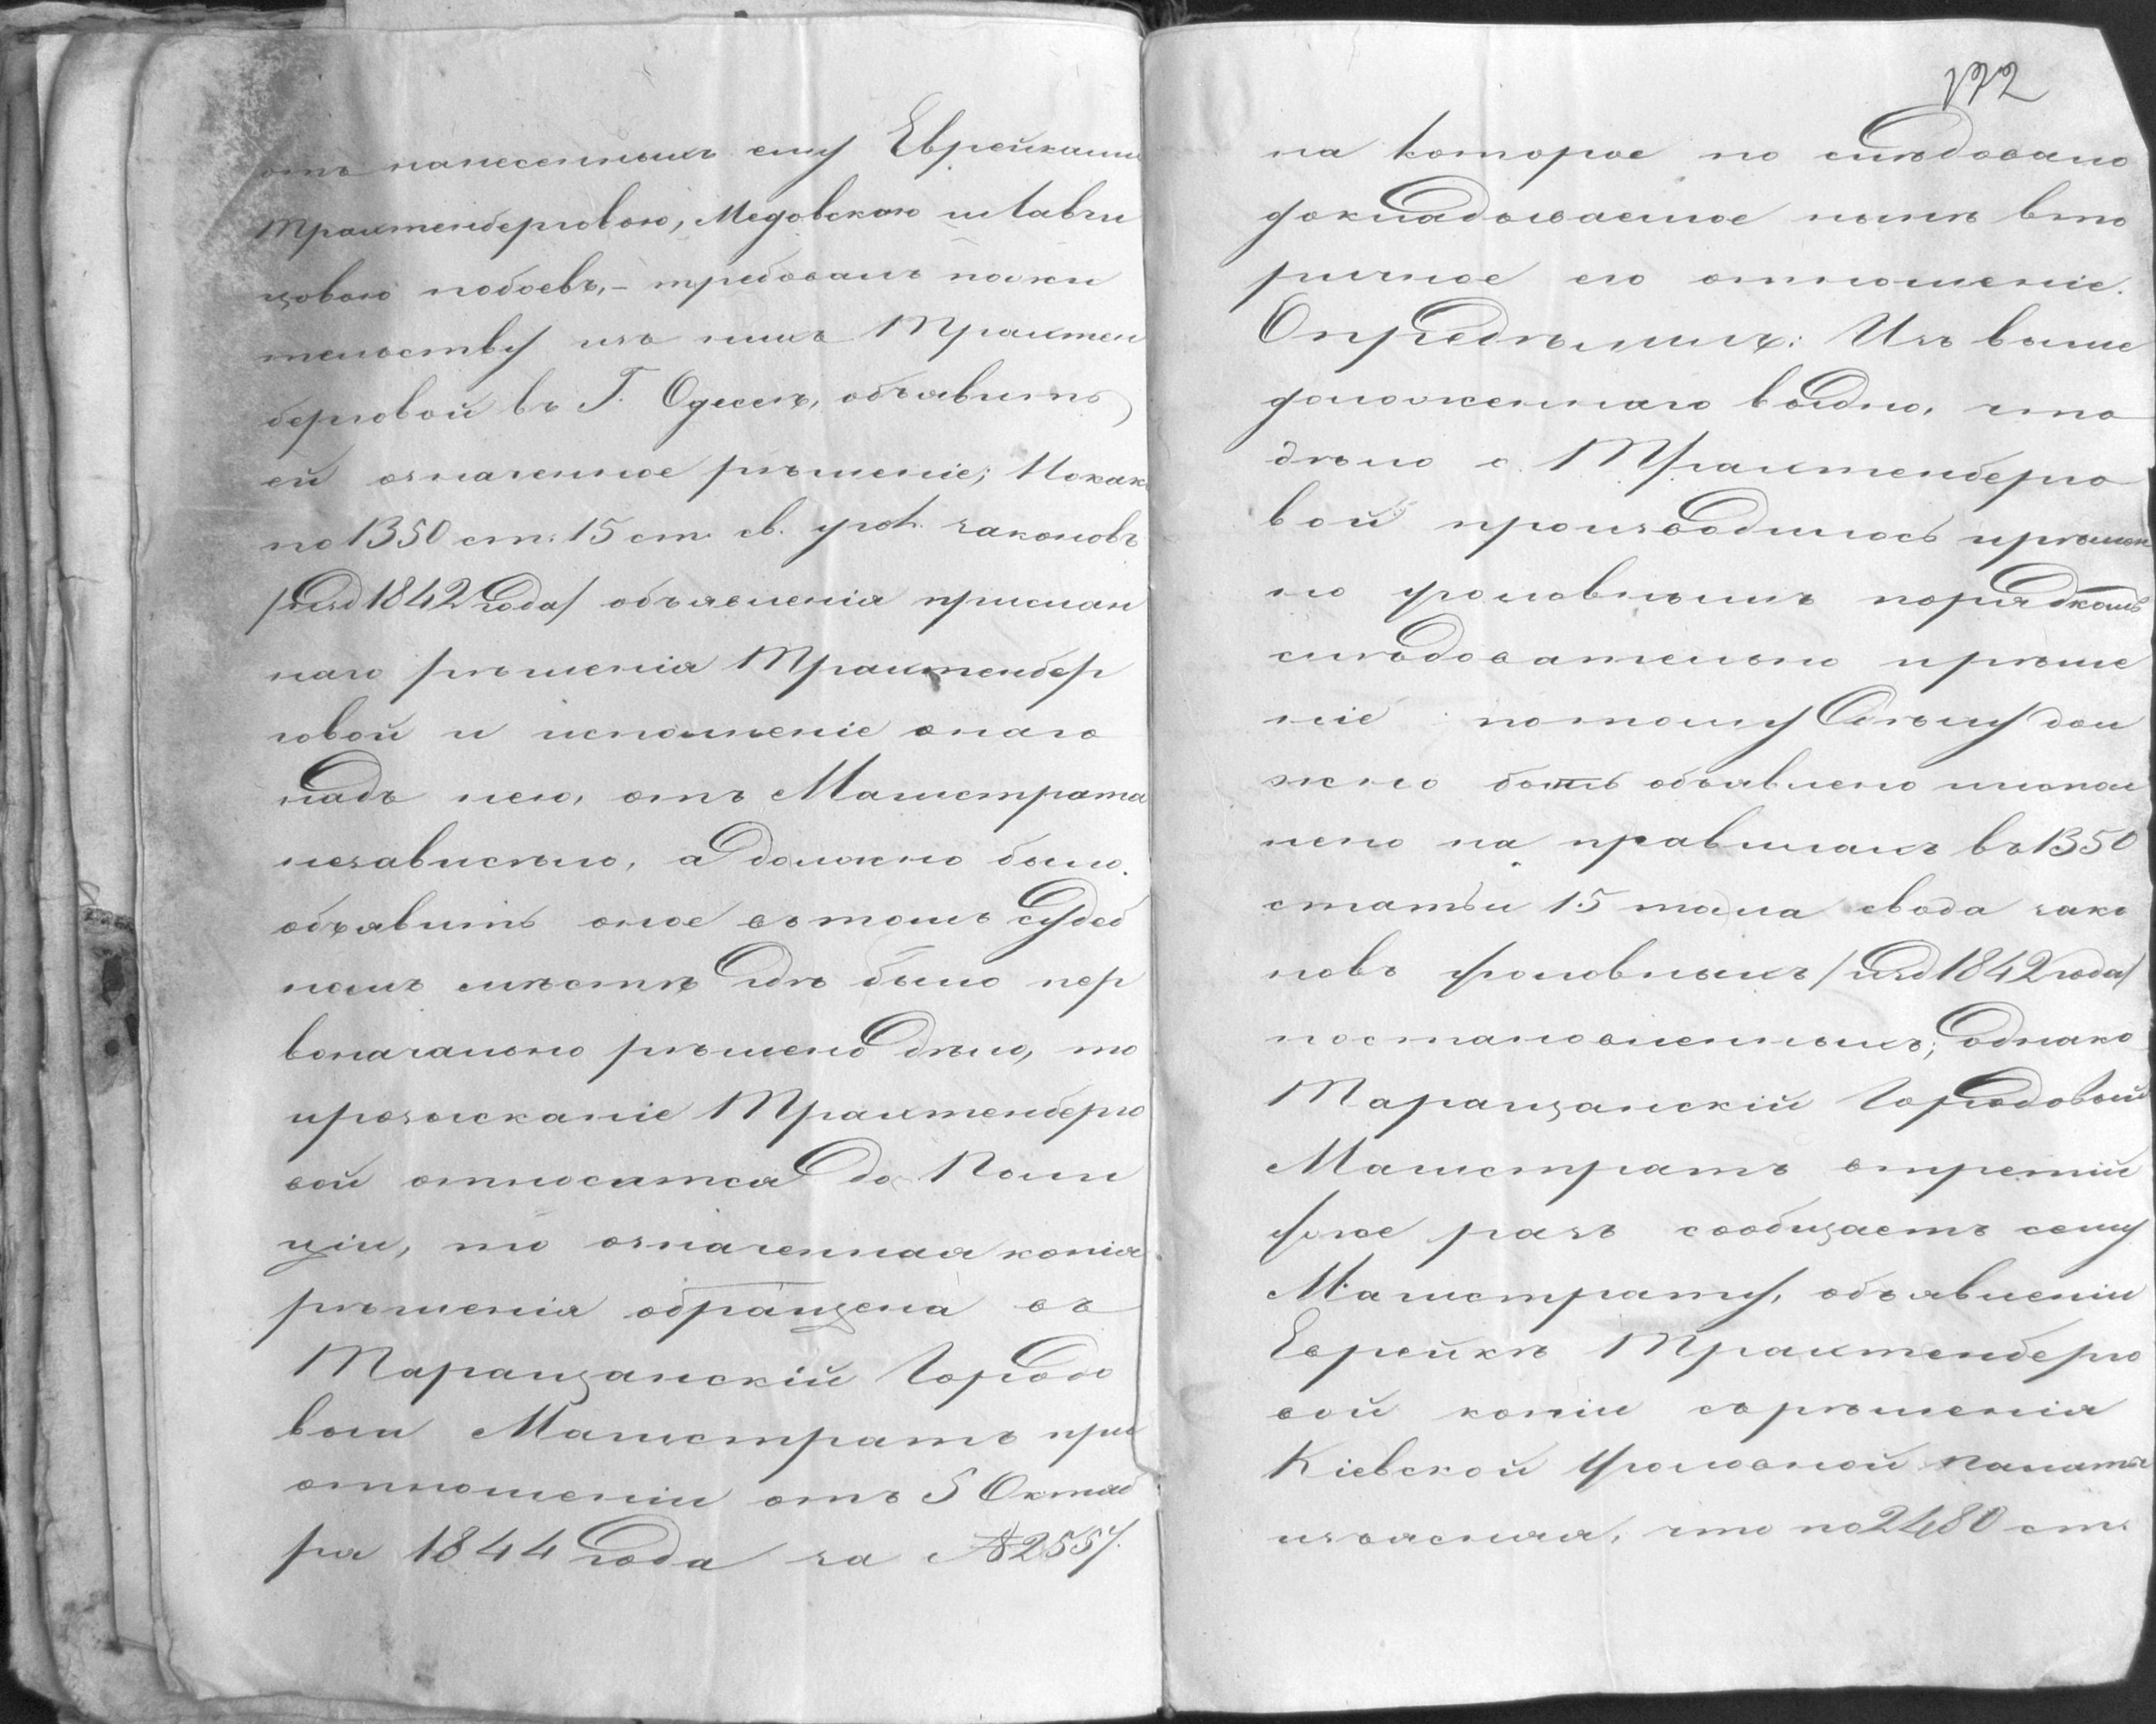 отъ нанесенныхъ ему Еврейками
Трахтенберговою, Медовскою и Равчи
цовою побоевъ, – требовалъ пожи
тельству изъ нихъ Трахтен
берговой въ Г. Одессѣ, объявить
ей означенное рѣшеніе; Нокакъ
по 1350 ст: 15 ст. св. угол. законовъ
/изд 1842 года/ объявленія прислан
наго рѣшенія Трахтенбер
говой и исполненіе онаго
надъ нею, отъ Магистрата
независѣло, а должно было
объявить оное вътомъ судеб
номъ мѣстѣ гдѣ было пер
воначально рѣшено дѣло, то
ирозысканіе Трахтенберго
вой относится до Поли
ціи, то означенная копія
рѣшенія обращена въ
Таращанскій Городо
вый Магистратъ при
отношеніи отъ 5 Октяб
ря 1844 года за № 2557.
122
на которое по слѣдовало
докладываемое нынѣ вто
ричное его отношеніе.
Опредѣлилъ: Изъ выше
доложеннаго видно, что
дѣло о Трахтенберго
вой производилось ирѣшен
но уголовнымъ порядкомъ
слѣдовательно ирѣше
ніе потому дѣлу дол
жно быть объявлено ииспол
нено на правилахъ въ 1350
статьи 15 тома свода зако
новъ уголовныхъ /изд 1842 года/
постановленныхъ; однако
Таращанскій Городовый
Магистратъ втретій
уже разъ сообщаетъ сему
Магистрату, объявленіи
Еврейкѣ Трахтенберго
вой копіи сърѣшенія
Кіевской Уголовной палаты
изъясняя, что по 2480 ст.